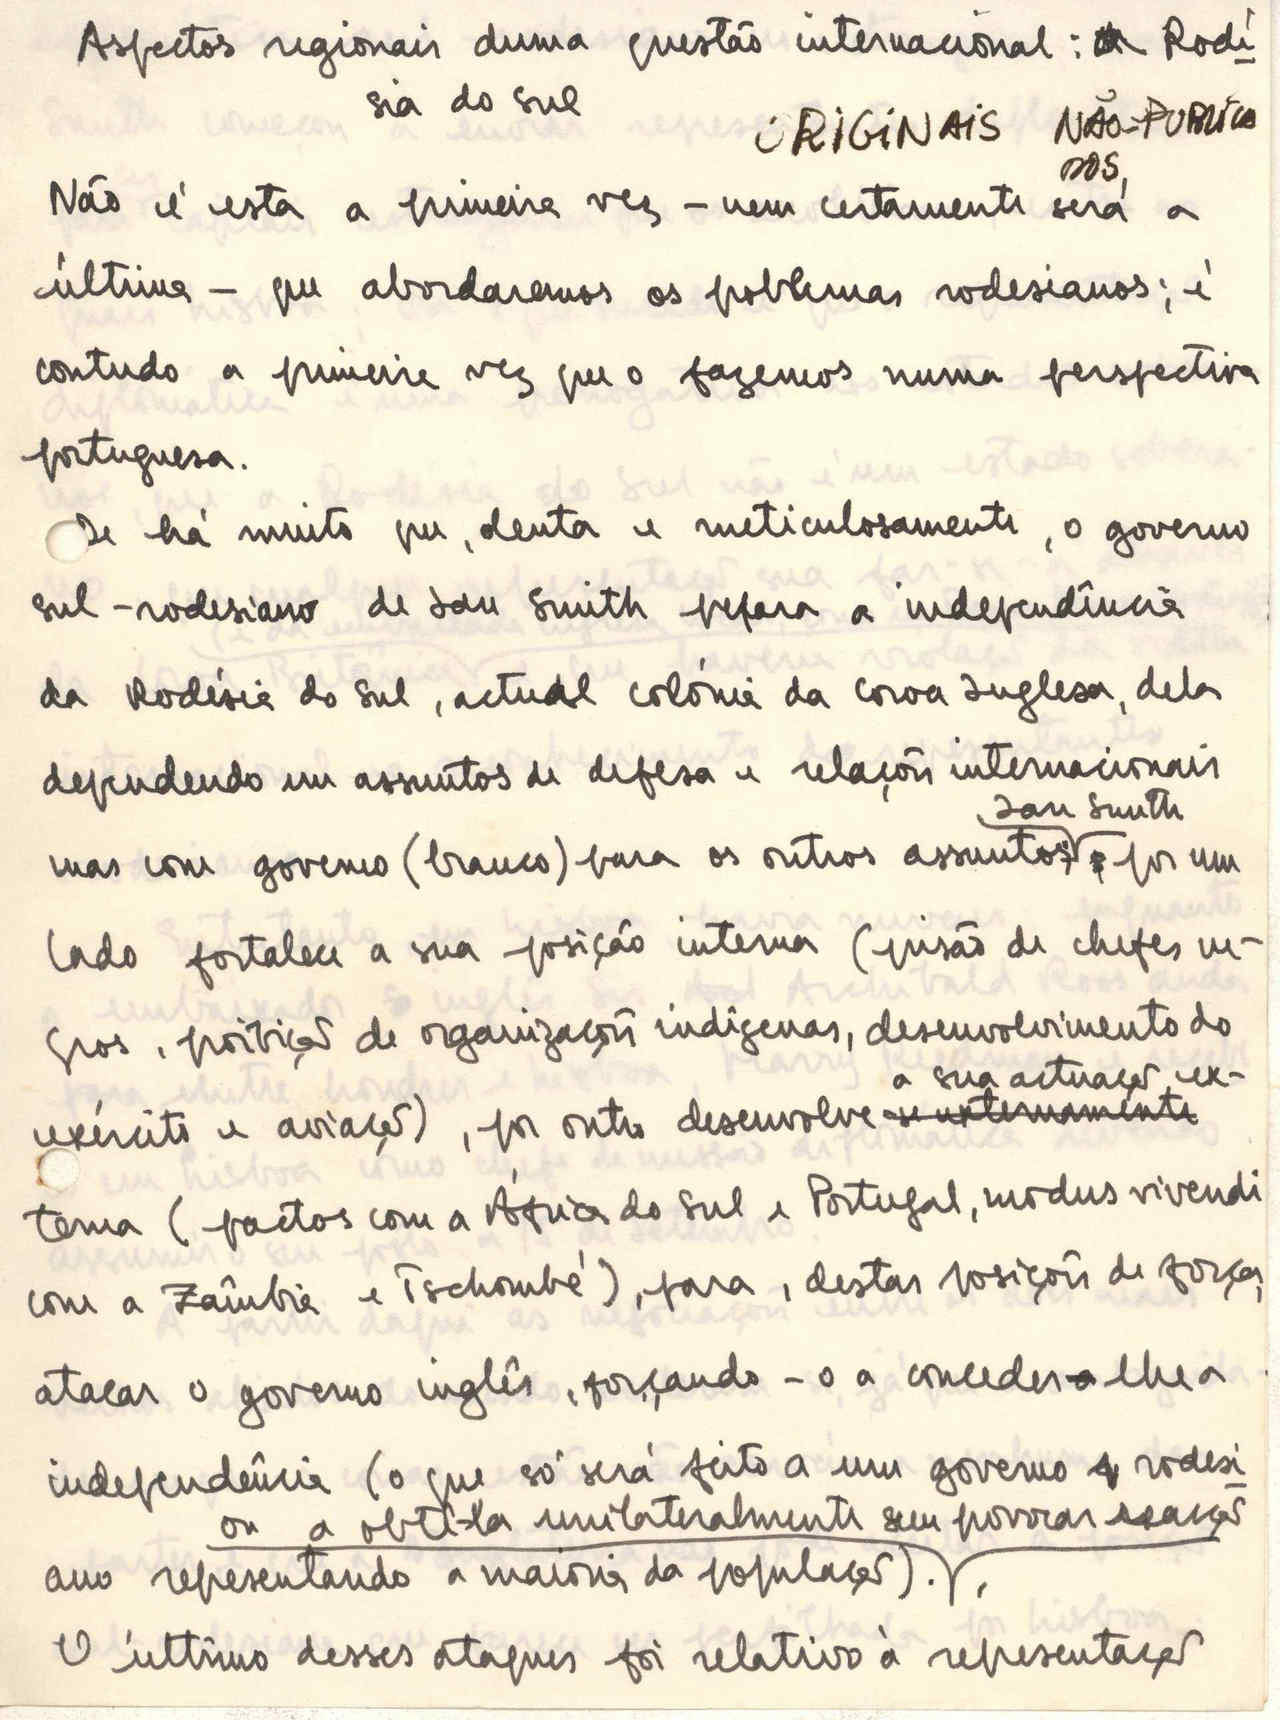 Aspectos regionais duma questão internacional: a Rodé
sia do Sul
ORIGINAIS NÃO-PUBLICA
DOS
Não é esta a primeira vez – nem certamente será a
última – que abordaremos os problemas rodesianos; é
contudo a primeira vez que o fazemos numa perspectiva
portuguesa.
De há muito que, lenta e meticulosamente, o governo
sul-rodesiano de Ian Smith prepara a independência
da Rodésia do Sul, actual colónia da coroa Inglesa, dela
dependendo em assuntos de defesa e relações internacionais
Ian Smith
mas com governo (branco) para os outros assuntos; por um
lado fortalece a sua posição interna (prisão de chefes ne-
gros, proibição de organizações indígenas, desenvolvimento do
a sua actuação ex-
exército e aviação), por outro desenvolve se externamente
terna (pactos com a África do Sul e Portugal, modus vivendi
com a Zâmbia e Tschombé), para, destas posições de força,
atacar o governo inglês, forçando-o a conceder-lhe a
independência (o que só será feito a um governo rodesi
ou a obtê-la unilateralmente sem provocar reacção
ano representando a maioria da população).
O último desses ataques foi relativo à representação